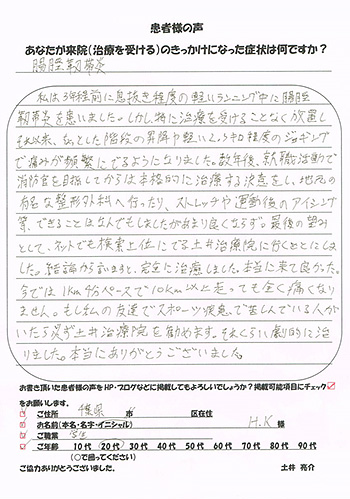 患者様の声
あなたが来院(治療を受ける)のきっかけになった症状は何ですか?
腸脛靭帯炎
私は3年程前に息抜き程度の軽いランニング中に腸脛
靭帯炎を患いました。しかし、特に治療を受けることなく放置し
それ以来、ちょっとした階段の昇降や軽い2、3キロ程度のジョギング
で痛みが頻繁にでるようになりました。数年後、就職活動で
消防官を目指してからは本格的に治療する決意をし、地元の
有名な整形外科へ行ったり、ストレッチや運動後のアイシング
等、できることはなんでもしましたがあまり良くならず。最後の望み
として、ネットでも検索上位にでる土井治療院に行くことにしま
した。結論から言いますと、完全に治療しました。本当に来て良かった。
今では1km4分ペースで10km以上走っても全く痛くなり
ません。もし私の友達でスポーツ疾患で苦しんでいる人が
いたら必ず土井治療院を勧めます。それくらい劇的に治
りました。本当にありがとうございました。
お書き頂いた患者様の声をHP・ブログなどに掲載してもよろしいでしょうか?掲載可能項目にチェック
をお願いします。
ご住所 千葉県 市 区在住
お名前(本名・名字・イニシャル) H.K 様
ご職業 学生
ご年齢 10代 20代 30代 40代 50代 60代 70代 80代 90代
(○で囲ってください)
ご協力ありがとうございました。 土井 亮介